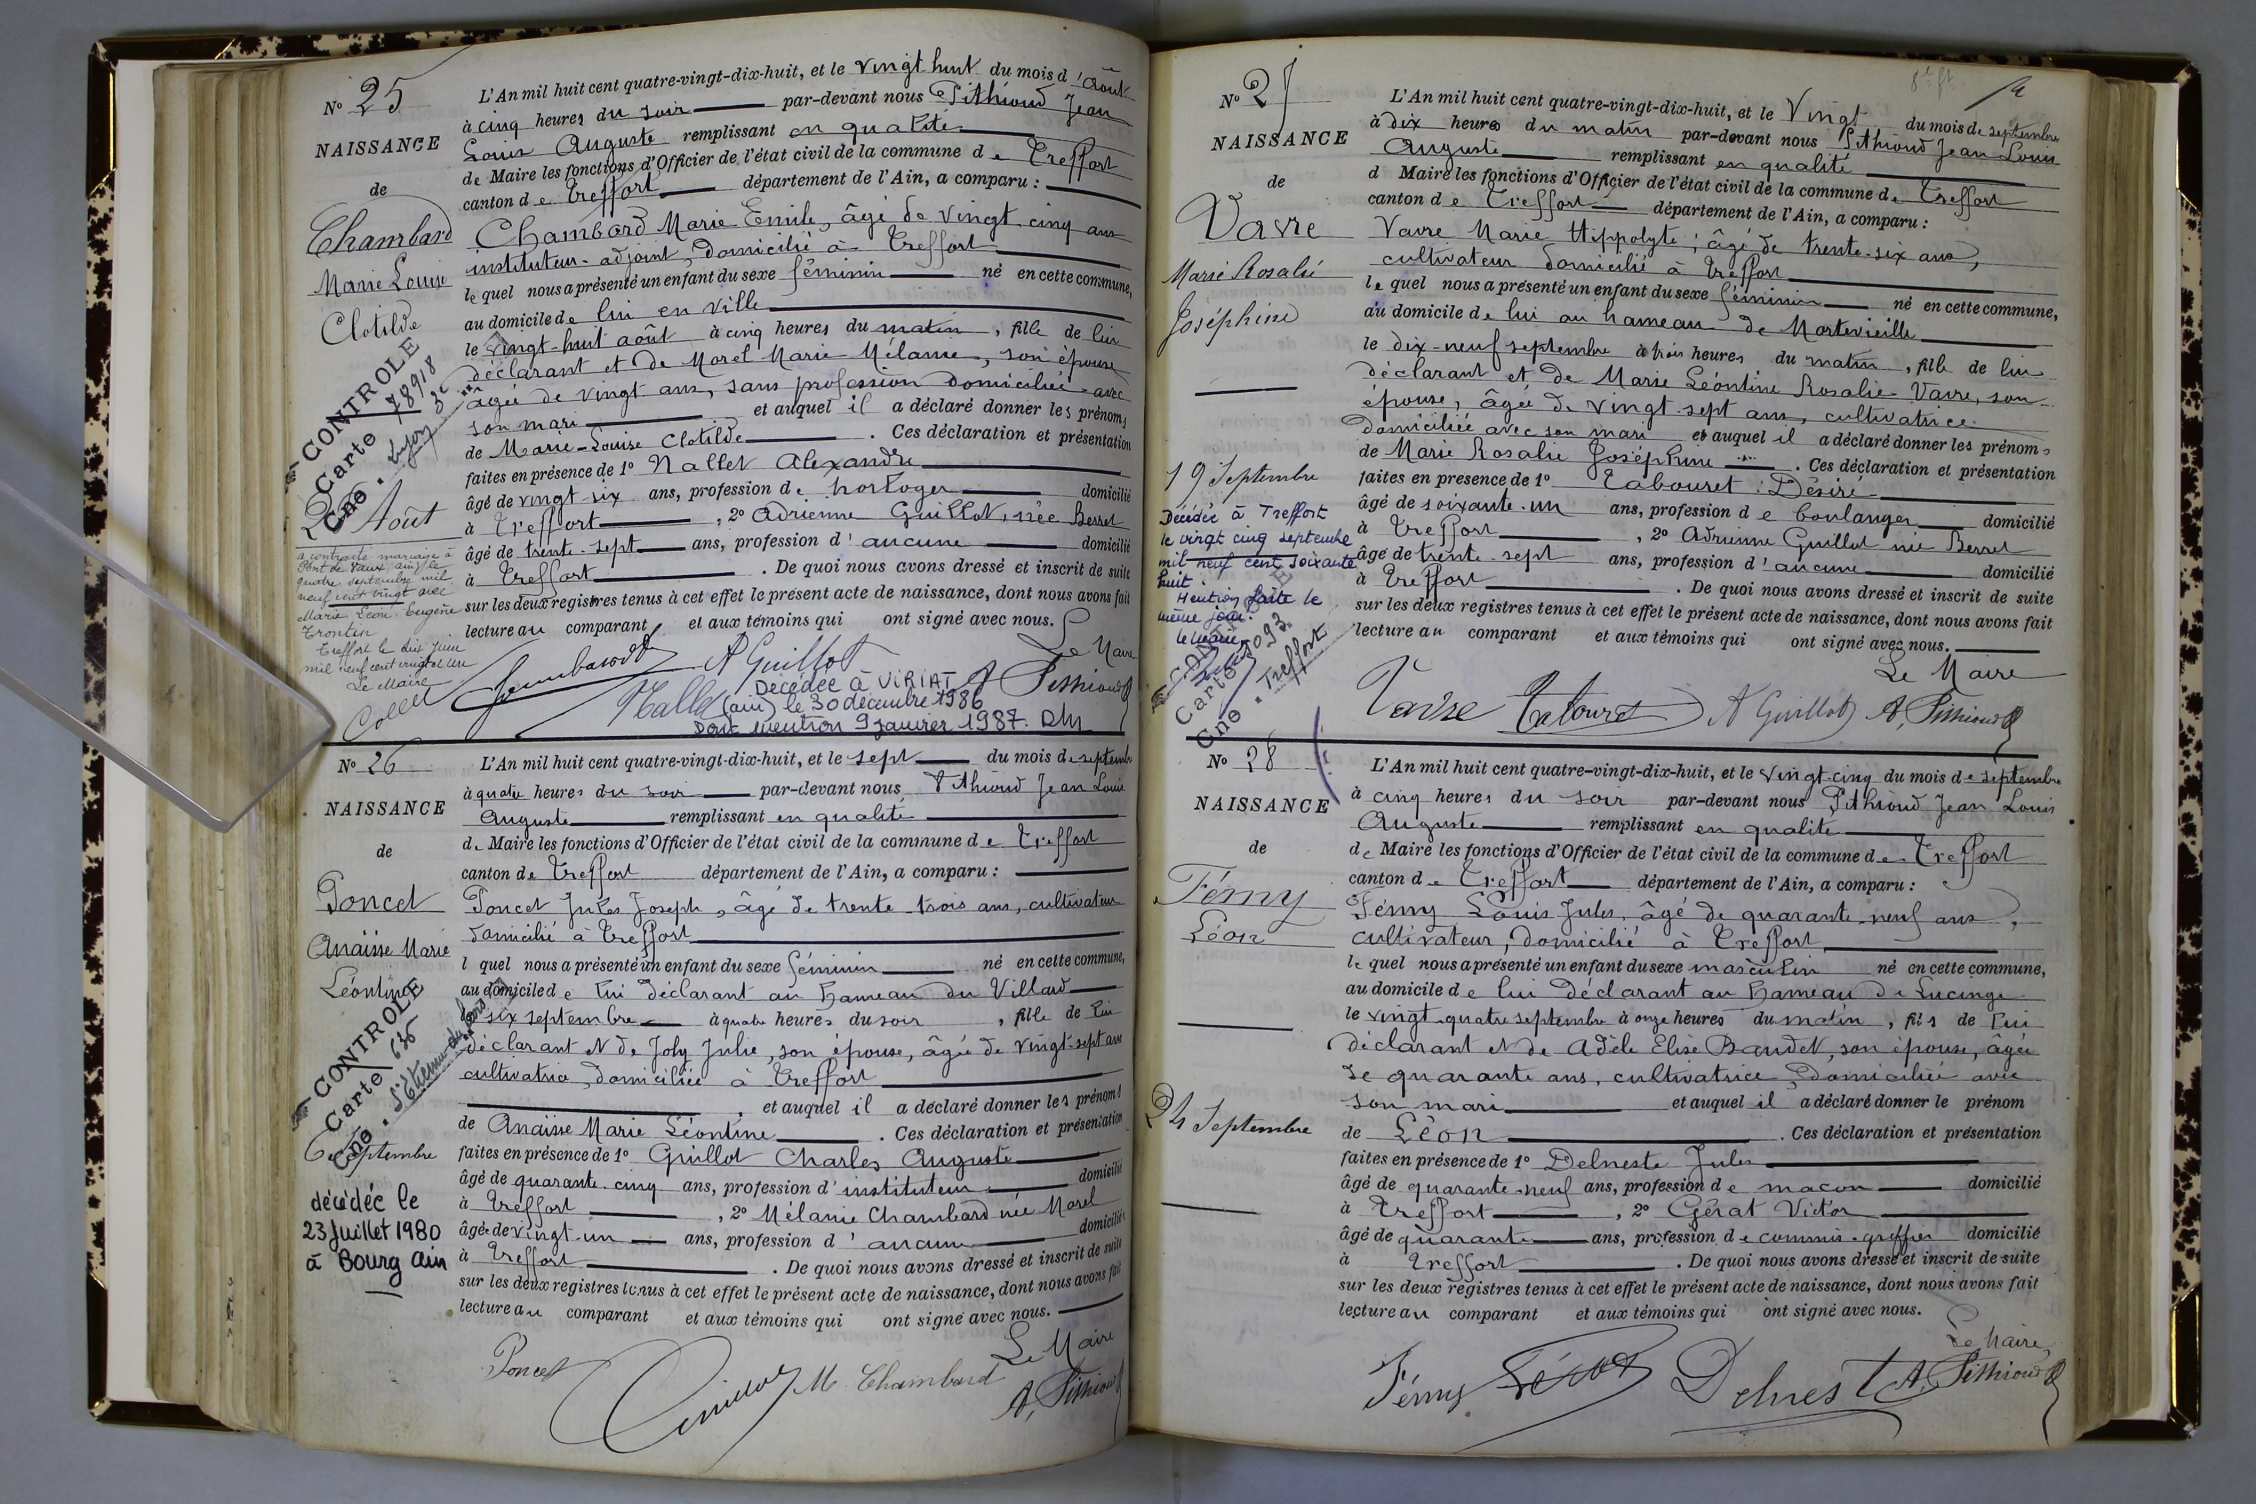 N° 25
NAISSANCE
de
Chambard
Marie Louise
Clotilde
CONTROLE
Carte 78918
Cne. Lyon 3e
28 Août
a contracté mariage à
Pont de Vaux (ain) le
quatre septembre mil
neuf cent vingt avec
Marie Léoni Eugène
Trontin
Treffort le dix Juin
mil neuf cent vingt et un
Le Maire
L'An mil huit cent quatre-vingt-dix-huit, et le vingt huit du mois d'août
à cinq heures du soir par-devant nous Pithioud Jean
Louis Auguste remplissant en qualité
de Maire les fonctions d'Officier de l'état civil de la commune de Treffort
canton de Treffort département de l'Ain, a comparu :
Chambard Marie Emile, âgé de vingt cinq ans
instituteur-adjoint, domicilié à Treffort
le quel nous a présenté un enfant du sexe féminin né en cette commune,
au domicile de lui en ville
le vingt-huit août à cinq heures du matin, fille de lui
déclarant et de Morel Marie Mélanie, son épouse
âgée de vingt ans, sans profession domiciliée avec
son mari et auquel il a déclaré donner les prénoms
de Marie-Louise Clotilde. Ces déclaration et présentation
faites en présence de 1° Nallet Alexandre
âgé de vingt-six ans, profession de horloger domicilié
à Treffort, 2° Adrienne Guillot, née Berret
âgé de trente-sept ans, profession d'aucune domicilié
à Treffort. De quoi nous avons dressé et inscrit de suite
sur les deux registres tenus à cet effet le présent acte de naissance, dont nous avons fait
lecture au comparant et aux témoins qui ont signé avec nous.
Le Maire
Chambard A Guillot
Nallet A. Pithioud
Décédée à VIRIAT
(ain) le 30 décembre 1986
Dont mention 9 janvier 1987.
N° 26
NAISSANCE
de
Poncet
Anaïsse Marie
Léontine
CONTROLE
Carte 636
Cne. St Etienne du Bois
6 Septembre
décédée le
23 Juillet 1980
à Bourg Ain
L'An mil huit cent quatre-vingt-dix-huit, et le sept du mois de septembre
à quatre heures du soir par-devant nous Pithioud Jean Louis
Auguste remplissant en qualité
de Maire les fonctions d'Officier de l'état civil de la commune de Treffort
canton de Treffort département de l'Ain, a comparu :
Poncet Jules Joseph, âgé de trente-trois ans, cultivateur
domicilié à Treffort
l quel nous a présenté un enfant du sexe féminin né en cette commune,
au domicile de lui déclarant au hameau du Villard
le six septembre à quatre heures du soir, fille de lui
déclarant et de Joly Julie, son épouse, âgée de vingt-sept ans
cultivatrice, domiciliée à Treffort
, et auquel il a déclaré donner les prénoms
de Anaïsse Marie Léontine. Ces déclaration et présentation
faites en présence de 1° Guillot Charles Auguste
âgé de quarante-cinq ans, profession d'instituteur domicilié
à Treffort, 2° Mélanie Chambard née Morel
âgé de vingt-un ans, profession d'aucune domicilié
à Treffort. De quoi nous avons dressé et inscrit de suite
sur les deux registres tenus à cet effet le présent acte de naissance, dont nous avons fait
lecture au comparant et aux témoins qui ont signé avec nous.
Le Maire
Poncet Guillot M. Chambard A. Pithioud
N° 27
NAISSANCE
de
Vavre
Marie Rosalie
Joséphine
19 Septembre
Décédée à Treffort
le vingt cinq septembre
mil neuf cent soixante
huit.
Mention faite le
même jour.
Le Maire
Cne. Treffort
L'An mil huit cent quatre-vingt-dix-huit, et le Vingt du mois de septembre
à dix heures du matin par-devant nous Pithioud Jean Louis
Auguste remplissant en qualité
d Maire les fonctions d'Officier de l'état civil de la commune de Treffort
canton de Treffort département de l'Ain, a comparu :
Vavre Marie Hippolyte, âgé de trente-six ans,
cultivateur domicilié à Treffort
le quel nous a présenté un enfant du sexe féminin né en cette commune,
au domicile de lui au hameau de Mortevieille
le dix-neuf septembre à trois heures du matin, fille de lui
déclarant et de Marie Léontine Rosalie Vavre, son
épouse, âgée de vingt-sept ans, cultivatrice
domiciliée avec son mari et auquel il a déclaré donner les prénoms
de Marie Rosalie Joséphine. Ces déclaration et présentation
faites en présence de 1° Tabouret Désiré
âgé de soixante-un ans, profession de boulanger domicilié
à Treffort, 2° Adrienne Guillot née Berret
âgé de trente-sept ans, profession d'aucune domicilié
à Treffort. De quoi nous avons dressé et inscrit de suite
sur les deux registres tenus à cet effet le présent acte de naissance, dont nous avons fait
lecture au comparant et aux témoins qui ont signé avec nous.
Le Maire
Vavre Tabouret A Guillot A. Pithioud
N° 28
NAISSANCE
de
Fémy
Léon
24 Septembre
L'An mil huit cent quatre-vingt-dix-huit, et le vingt-cinq du mois de septembre
à cinq heures du soir par-devant nous Pithioud Jean Louis
Auguste remplissant en qualité
de Maire les fonctions d'Officier de l'état civil de la commune de Treffort
canton de Treffort département de l'Ain, a comparu :
Fémy Louis Jules, âgé de quarante-neuf ans,
cultivateur, domicilié à Treffort
le quel nous a présenté un enfant du sexe masculin né en cette commune,
au domicile de lui déclarant au hameau de Lucinge
le vingt-quatre septembre à onze heures du matin, fils de lui
déclarant et de Adèle Elise Baudet, son épouse, âgée
de quarante ans, cultivatrice, domiciliée avec
son mari et auquel il a déclaré donner le prénom
de Léon. Ces déclaration et présentation
faites en présence de 1° Delneste Jules
âgé de quarante-neuf ans, profession de maçon domicilié
à Treffort, 2° Gérat Victor
âgé de quarante ans, profession de commis-greffier domicilié
à Treffort. De quoi nous avons dressé et inscrit de suite
sur les deux registres tenus à cet effet le présent acte de naissance, dont nous avons fait
lecture au comparant et aux témoins qui ont signé avec nous.
Le Maire,
Fémy Gérat Delneste A. Pithioud